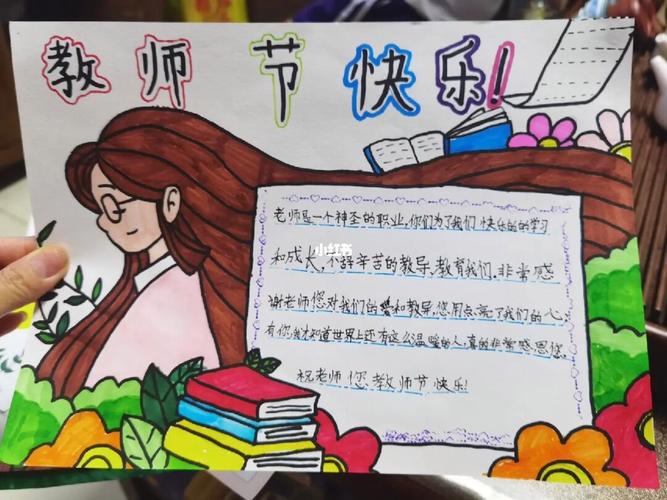 教师节快乐!
老师是一个神圣的职业,你们为了我们快乐的的学习
和成长,不辞辛苦的教导,教育我们,非常感
小红书
谢老师您对我们的爱和教导,您用点亮了我们的心,
有你,我才知道世界上还有这么温暖的人,真的非常感恩您。
祝老师您教师节快乐!